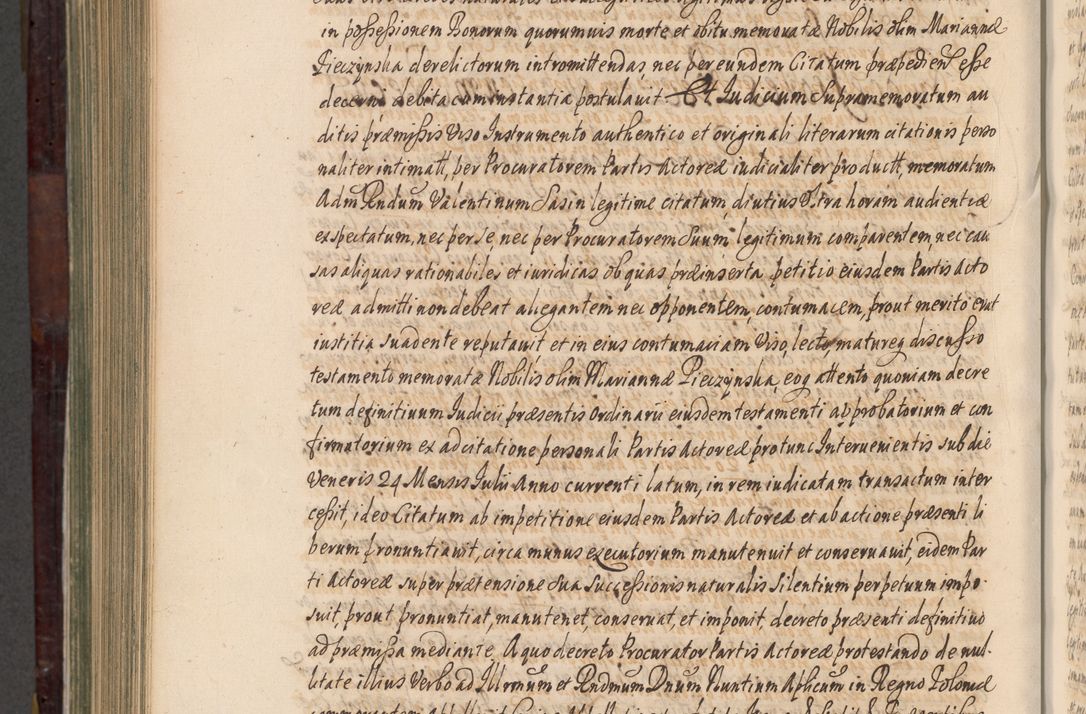 in possessionem Bonorum quorumuis morte et obitu memoratæ Nobilis olim Mariannæ
Pieczynska derelictorum intromittendas, nec per eundem Citatum præpediend esse
decerni debita cum instantia postulauit Et Iudicium Supramemoratum au
ditis præmissis Viso Instrumento authentico et originali literarum citationis perso
naliter intimatt, per Procuratorem Partis Actoreæ iudicialiter productt, memoratum
Adm Rndum Valentinum Sasin legitime citatum, diutius Vltra horam audientiæ
expectatum, nec per se, nec per Procuratorem Suum legitimum comparentem, nec cau
sas aliquas rationabiles et iuridicas ob quas præinserta petitio eiusdem Partis Acto
reæ admitti non debeat allegantem nec opponentem, contumacem, prout merito erat
iustitia suadente reputauit, et in eius contumaciam Viso, lecto, matureq discusso
testamento memoratæ Nobilis olim Mariannæ Pieczynska, eoq attento quoniam decre
tum definitiuum Iudicii præsentis Ordinarii eiusdem testamenti approbatorium et con
firmatorium ex adcitatione personali Partis Actoreæ protunc Interuenientis sub die
Veneris 24 Mensis Iulii Anno currenti latum, in rem iudicatam transactum inter
cessit, ideo Citatum ab impetitione eiusdem Partis Actoreæ et ab actione præsenti li
berum pronuntiauit, circa munus executorium manutenuit et conseruauit, eidem Par
ti Actoreæ super prætensione Sua Successionis naturalis Silentium perpetuum impo
suit, prout pronuntiat, manutenet, conseruat, et imponit, decreto præsenti definitiuo
ad præmissa mediante. A quo decreto Procurator Partis Actoreæ protestando de nul
litate illius Verbo ad Illrmum et Rndmum Dnum Nuntium Aplicum in Regno Poloniæ